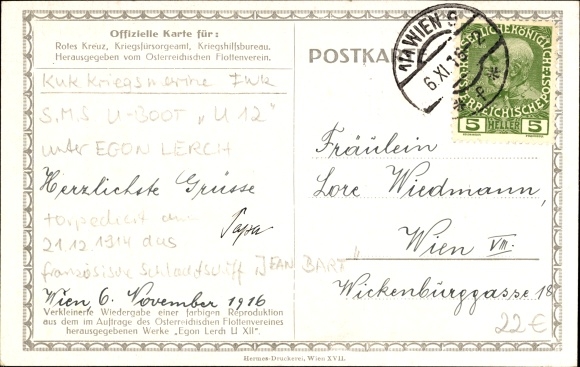 Offizielle Karte für:
Rotes Kreuz, Kriegsfürsorgeamt, Kriegshilfsbureau.
Herausgegeben vom Österreichischen Flottenverein.
KuK Kriegsmarine
S.M.S U-BOOT „U 12"
unter EGON LERCH
Herzlichste Grüsse
torpediert am
Papa
21.12.1914 das
französische Schlachtschiff „JEAN BART"
Wien, 6. November 1916
Verkleinerte Wiedergabe einer farbigen Reproduktion
aus dem im Auftrage des Österreichischen Flottenvereines
herausgegebenen Werke „Egon Lerch U XII".
POSTKAR
WIEN 9
6.XI.16
KAISERLICHE KÖNIGLICHE
ÖSTERREICHISCHE
5 5
HELLER
Fräulein
Lore Wiedmann,
Wien VIII.
Wickenburggasse 18
22€
Hermes-Druckerei, Wien XVII.